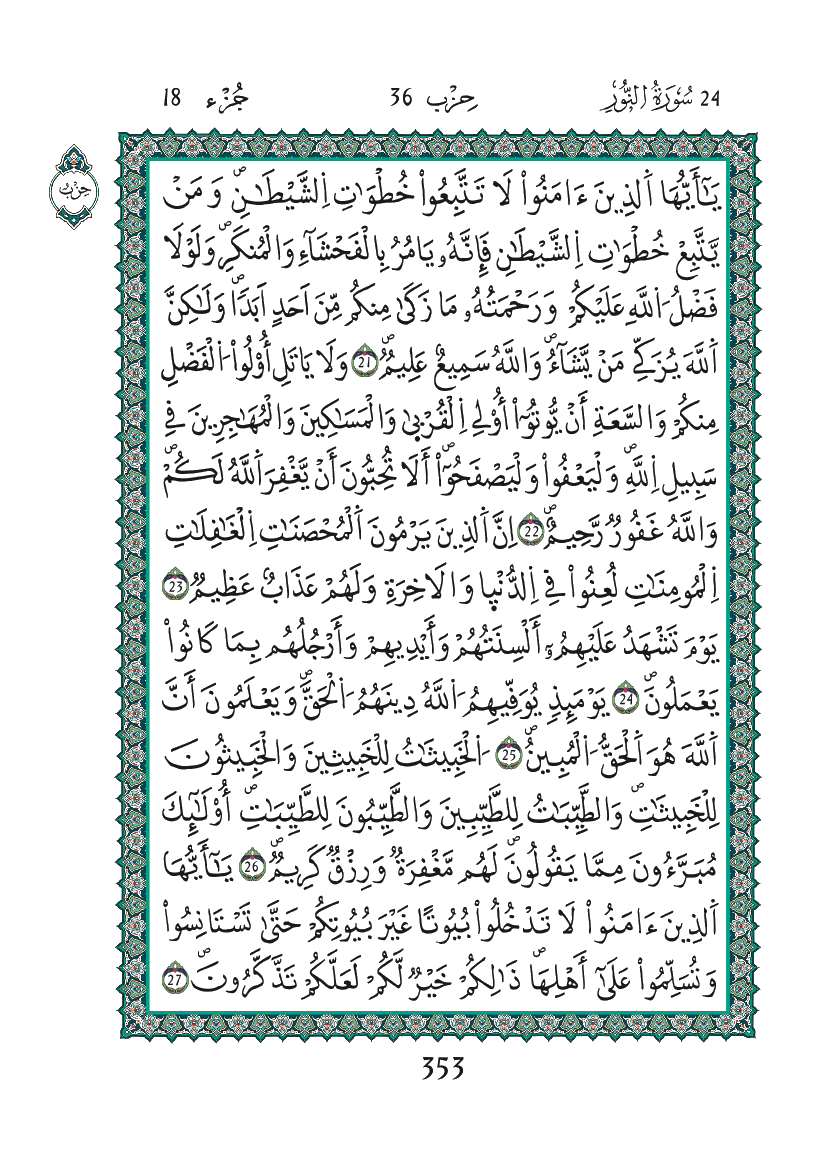 24 سُورَةُ النُّورِ
حِزْب 36
جُزْء 18
حِزْب
يَٰٓأَيُّهَا اَ۬لذِينَ ءَامَنُواْ لَا تَتَّبِعُواْ خُطْوَٰتِ اِ۬لشَّيْطَٰنِۖ وَمَنْ
يَّتَّبِعْ خُطْوَٰتِ اِ۬لشَّيْطَٰنِ فَإِنَّهُۥ يَامُرُ بِالْفَحْشَآءِ وَالْمُنكَرِۖ وَلَوْلَا
فَضْلُ اُ۬للَّهِ عَلَيْكُمْ وَرَحْمَتُهُۥ مَا زَكَىٰ مِنكُم مِّنَ اَحَدٍ اَبَداٗۖ وَلَٰكِنَّ
اَ۬للَّهَ يُزَكِّے مَنْ يَّشَآءُۖ وَاللَّهُ سَمِيعٌ عَلِيمٞۖ 21 وَلَا يَاتَلِ أُوْلُواْ اُ۬لْفَضْلِ
مِنكُمْ وَالسَّعَةِ أَنْ يُّوتُوٓاْ أُوْلِے اِ۬لْقُرْبَىٰ وَالْمَسَٰكِينَ وَالْمُهَٰجِرِينَ فِے
سَبِيلِ اِ۬للَّهِۖ وَلْيَعْفُواْ وَلْيَصْفَحُوٓاْۖ أَلَا تُحِبُّونَ أَنْ يَّغْفِرَ اَ۬للَّهُ لَكُمْۖ
وَاللَّهُ غَفُورٞ رَّحِيمٌۖ 22 اِنَّ اَ۬لذِينَ يَرْمُونَ اَ۬لْمُحْصَنَٰتِ اِ۬لْغَٰفِلَٰتِ
اِ۬لْمُومِنَٰتِ لُعِنُواْ فِے اِ۬لدُّنْيَا وَالَاخِرَةِ وَلَهُمْ عَذَابٌ عَظِيمٞ 23
يَوْمَ تَشْهَدُ عَلَيْهِمُۥٓ أَلْسِنَتُهُمْ وَأَيْدِيهِمْ وَأَرْجُلُهُم بِمَا كَانُواْ
يَعْمَلُونَۖ 24 يَوْمَئِذٖ يُوَفِّيهِمُ اُ۬للَّهُ دِينَهُمُ اُ۬لْحَقَّۖ وَيَعْلَمُونَ أَنَّ
اَ۬للَّهَ هُوَ اَ۬لْحَقُّ اُ۬لْمُبِينُۖ 25 اُ۬لْخَبِيثَٰتُ لِلْخَبِيثِينَ وَالْخَبِيثُونَ
لِلْخَبِيثَٰتِۖ وَالطَّيِّبَٰتُ لِلطَّيِّبِينَ وَالطَّيِّبُونَ لِلطَّيِّبَٰتِۖ أُوْلَٰٓئِكَ
مُبَرَّءُونَ مِمَّا يَقُولُونَۖ لَهُم مَّغْفِرَةٞ وَرِزْقٞ كَرِيمٞۖ 26 يَٰٓأَيُّهَا
اَ۬لذِينَ ءَامَنُواْ لَا تَدْخُلُواْ بُيُوتاً غَيْرَ بُيُوتِكُمْ حَتَّىٰ تَسْتَانِسُواْ
وَتُسَلِّمُواْ عَلَىٰٓ أَهْلِهَاۖ ذَٰلِكُمْ خَيْرٞ لَّكُمْ لَعَلَّكُمْ تَذَّكَّرُونَۖ 27
353